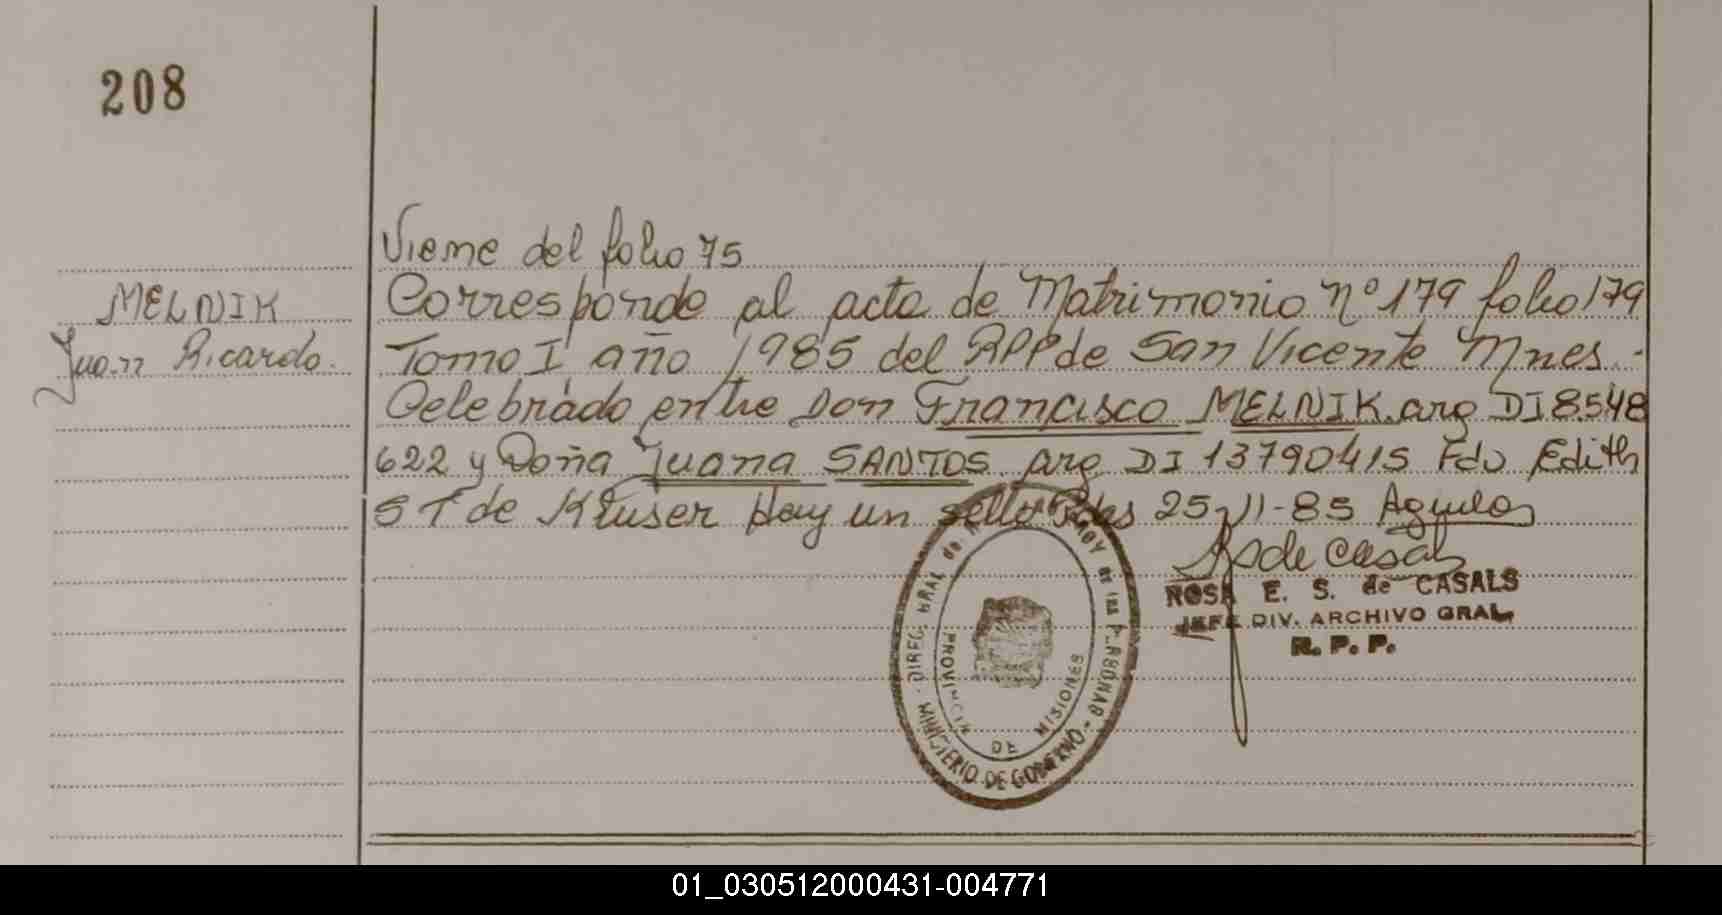 208
Viene del folio 75
MELNIK
Juan Ricardo.
Corresponde al acta de Matrimonio nº 179 folio 179
Tomo I año 1985 del RPP de San Vicente Mnes.-
Celebrado entre Don Francisco MELNIK arg DI 8548
622 y Doña Juana SANTOS arg DI 13790415 Fdo Edith
S T de Kruser Hay un sello Pdas 25-11-85
de Casals
ROSA E. S. de CASALS
JEFE DIV. ARCHIVO GRAL.
R. P. P.
DIREC. GRAL de
de las PERSONAS
MINISTERIO DE GOBIERNO
PROVINCIA DE MISIONES
01_030512000431-004771